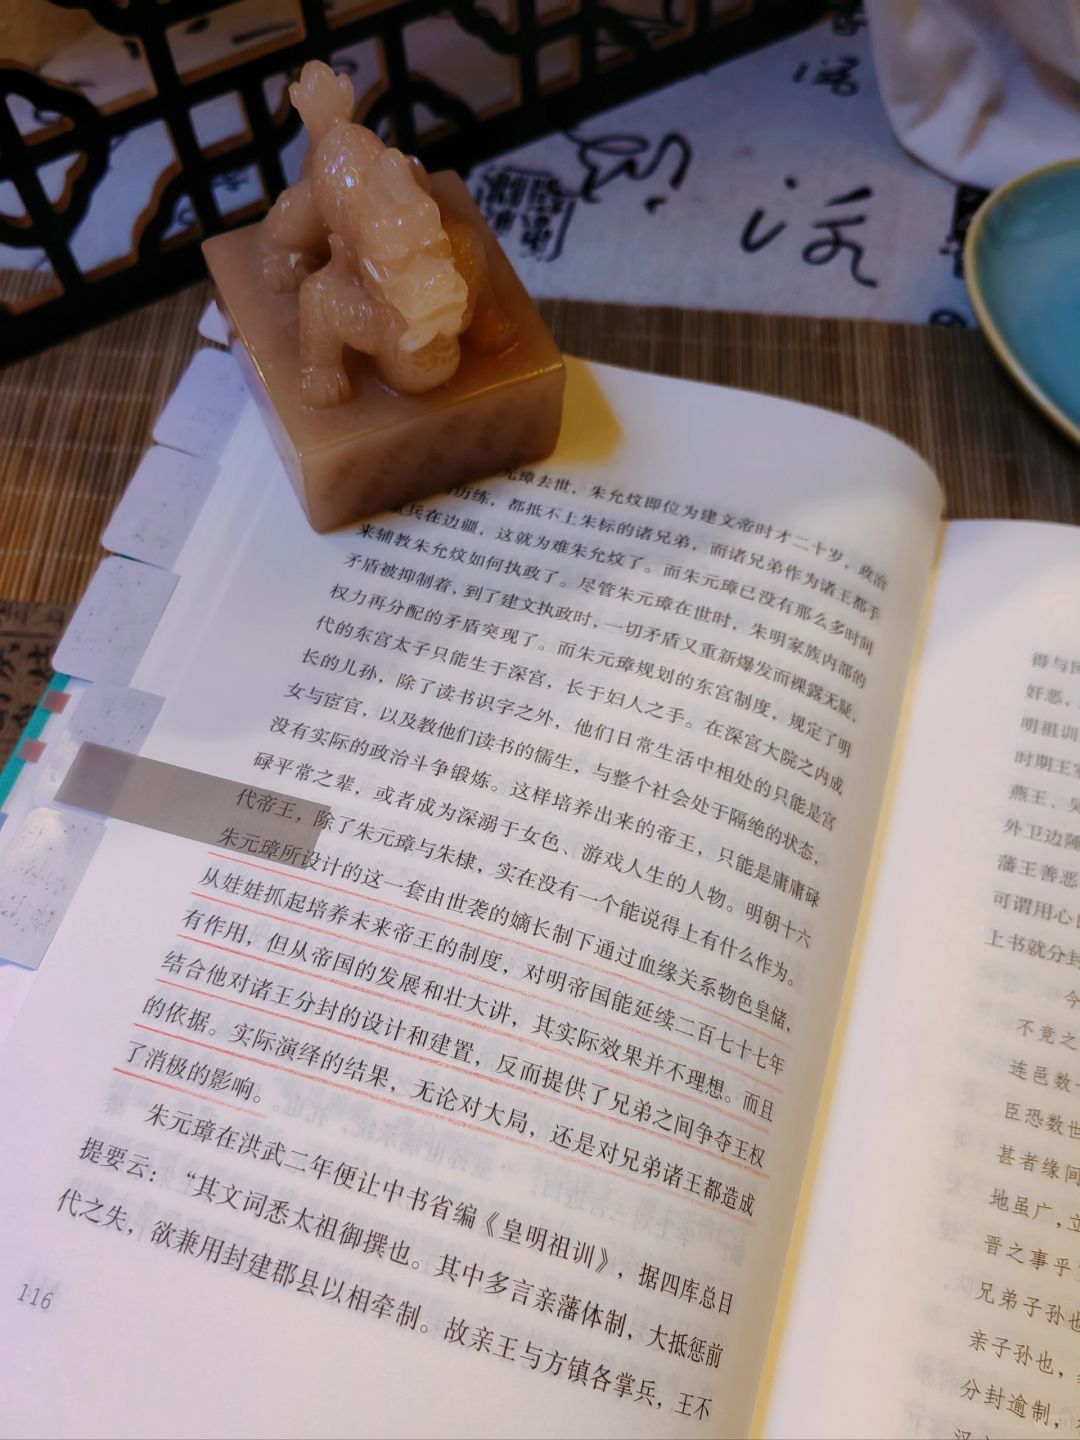 元璋去世，朱允炆即位为建文帝时才二十岁，政治
历练，都抵不上朱标的诸兄弟，而诸兄弟作为诸王都手
兵在边疆，这就为难朱允炆了。而朱元璋已没有那么多时间
来辅教朱允炆如何执政了。尽管朱元璋在世时，朱明家族内部的
矛盾被抑制着，到了建文执政时，一切矛盾又重新爆发而裸露无疑，
权力再分配的矛盾突现了。而朱元璋规划的东宫制度，规定了明
代的东宫太子只能生于深宫，长于妇人之手。在深宫大院之内成
长的儿孙，除了读书识字之外，他们日常生活中相处的只能是宫
女与宦官，以及教他们读书的儒生，与整个社会处于隔绝的状态，
没有实际的政治斗争锻炼。这样培养出来的帝王，只能是庸庸碌
碌平常之辈，或者成为深溺于女色、游戏人生的人物。明朝十六
代帝王，除了朱元璋与朱棣，实在没有一个能说得上有什么作为。
朱元璋所设计的这一套由世袭的嫡长制下通过血缘关系物色皇储，
从娃娃抓起培养未来帝王的制度，对明帝国能延续二百七十七年
有作用，但从帝国的发展和壮大讲，其实际效果并不理想。而且
结合他对诸王分封的设计和建置，反而提供了兄弟之间争夺王权
的依据。实际演绎的结果，无论对大局，还是对兄弟诸王都造成
了消极的影响。
朱元璋在洪武二年便让中书省编《皇明祖训》，据四库总目
提要云：“其文词悉太祖御撰也。其中多言亲藩体制，大抵惩前
代之失，欲兼用封建郡县以相牵制。故亲王与方镇各掌兵，王不
116
得与
奸恶，
明祖训
时期王室
燕王、吴
外卫边陲
藩王善恶
可谓用心
上书就分封
今
不竟之
连邑数
臣恐数世
甚者缘间
地虽广，立
晋之事乎
兄弟子孙也
亲子孙也，
分封逾制，